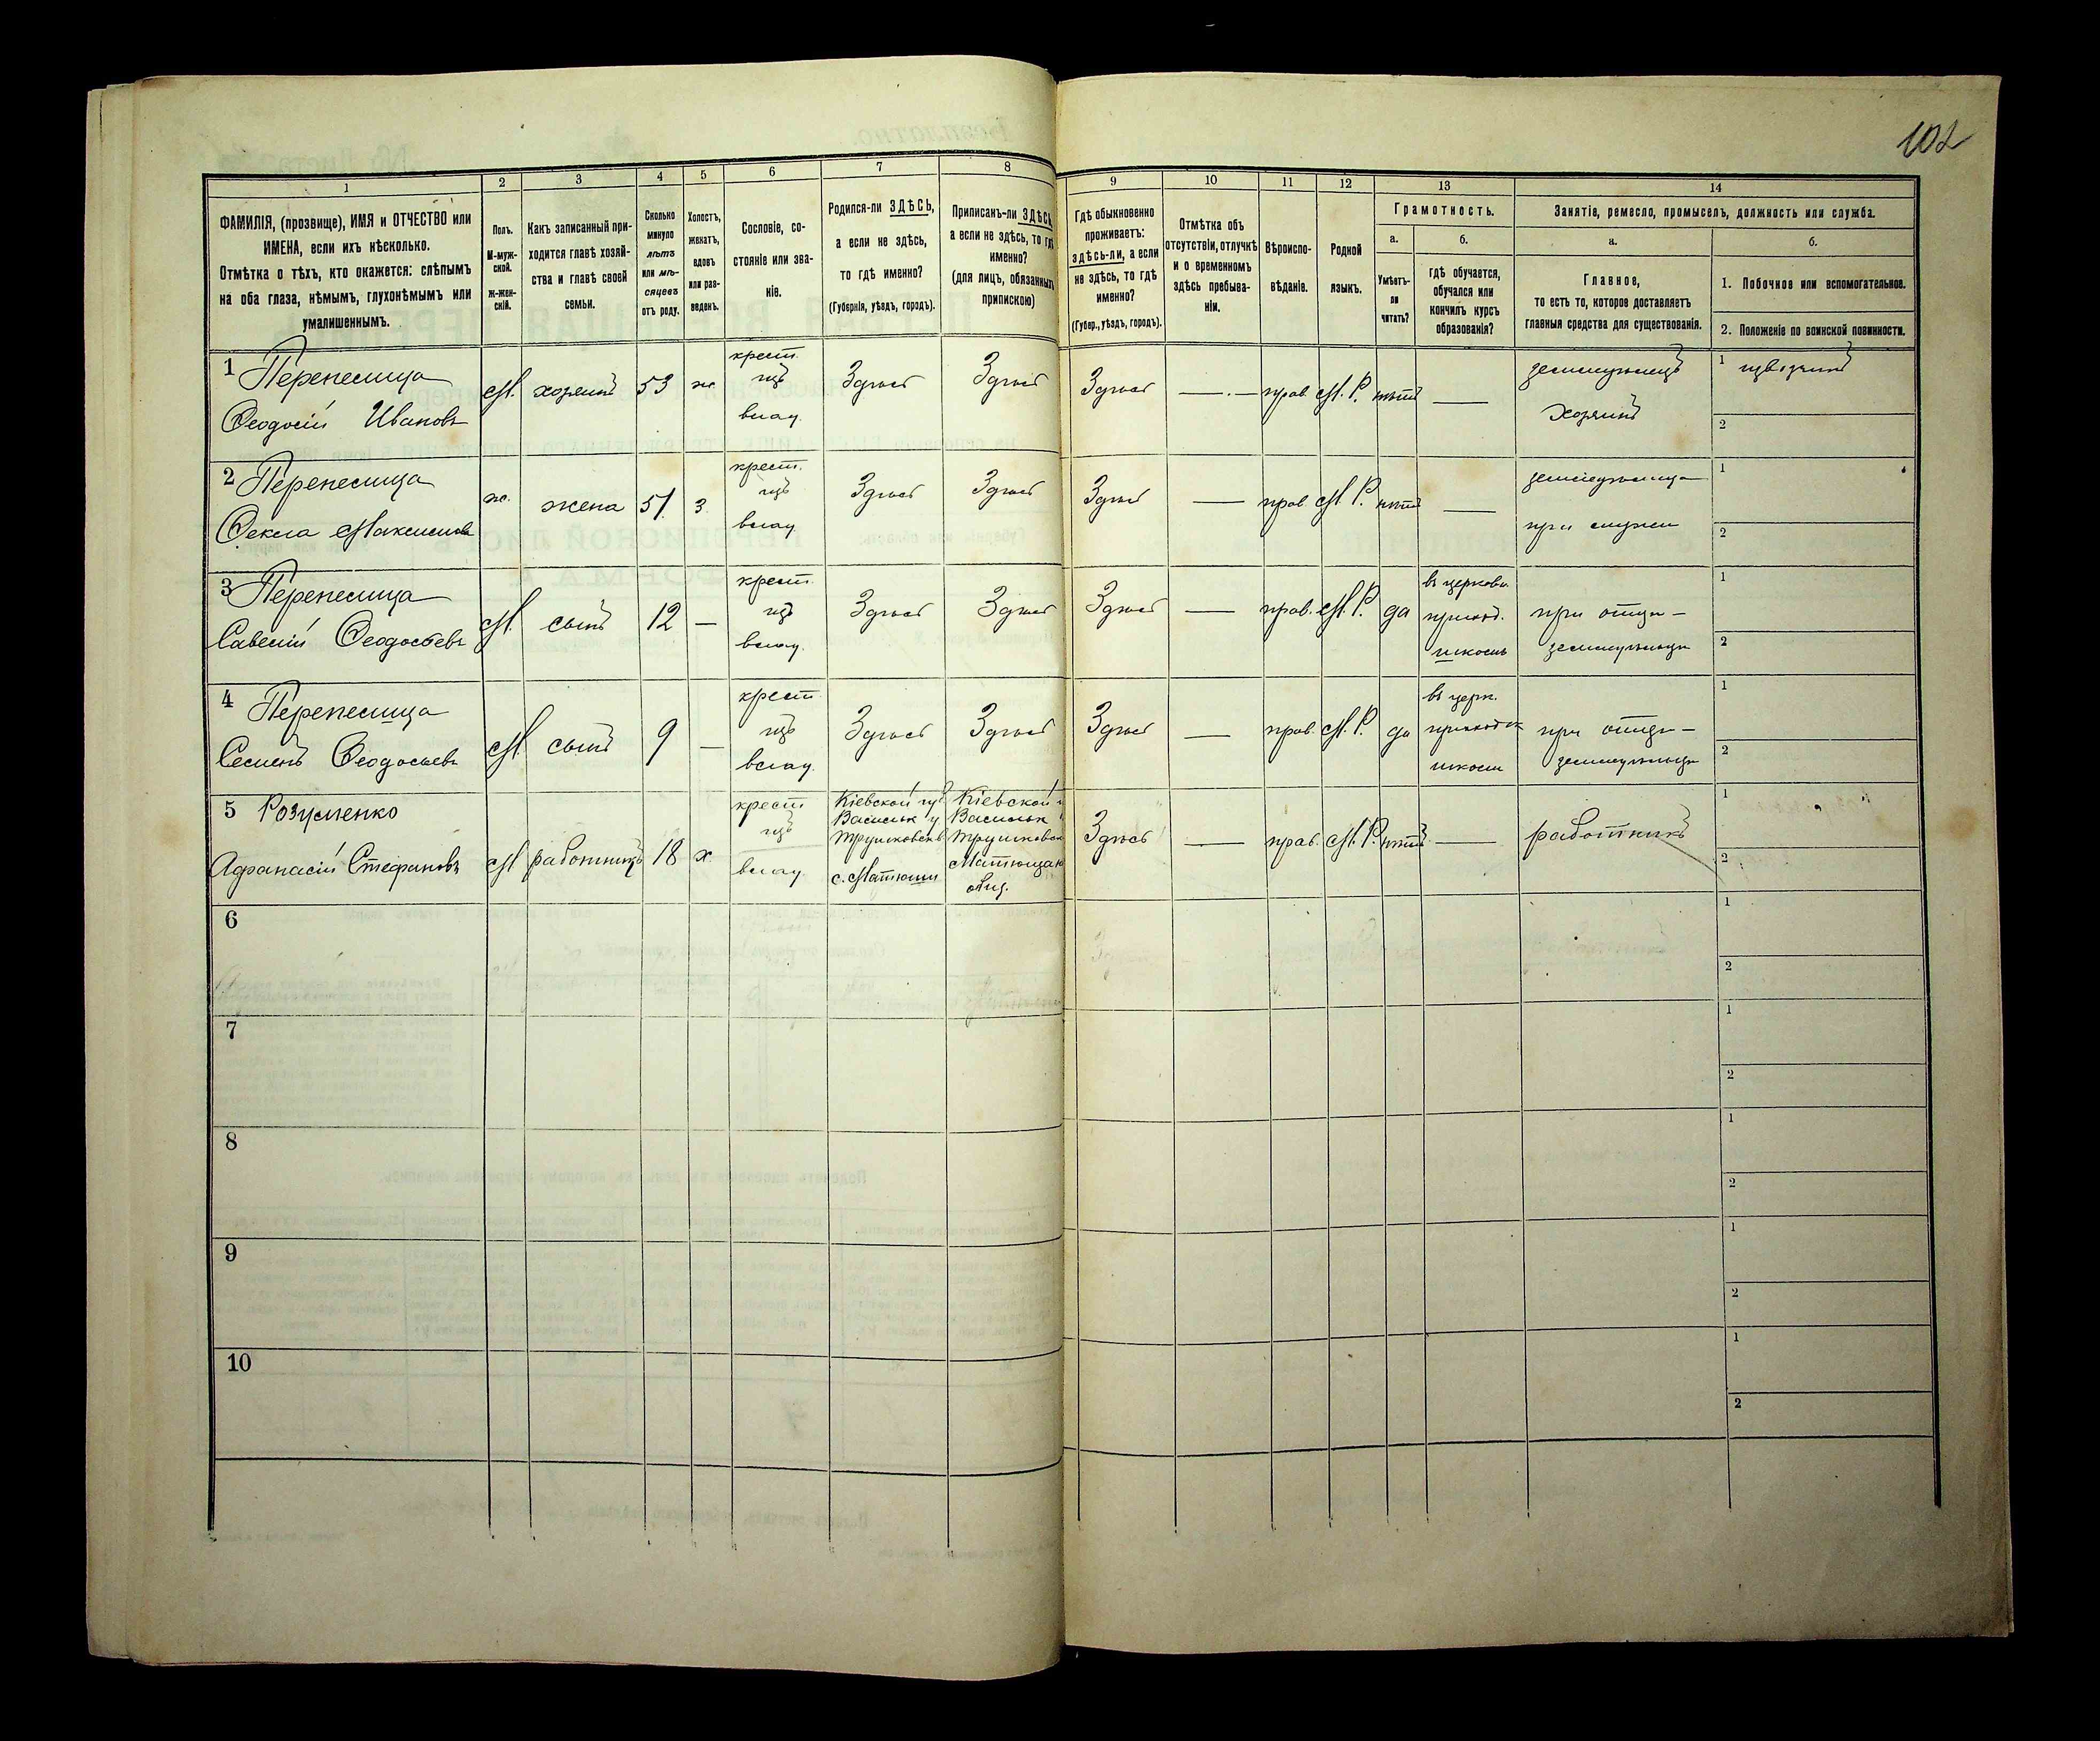 102
1 2 3 4 5 6 7 8 9 10 11 12 13 14
ФАМИЛІЯ, (прозвище), ИМЯ и ОТЧЕСТВО или
ИМЕНА, если ихъ нѣсколько.
Отмѣтка о тѣхъ, кто окажется: слѣпымъ
на оба глаза, нѣмымъ, глухонѣмымъ или
умалишеннымъ.
Полъ.
М-муж-
ской.
Ж-жен-
скій.
Какъ записанный при-
ходится главѣ хозяй-
ства и главѣ своей
семьи.
Сколько
минуло
лѣтъ
или мѣ-
сяцевъ
отъ роду.
Холостъ,
женатъ,
вдовъ
или раз-
веденъ.
Сословіе, со-
стояніе или зва-
ніе.
Родился-ли ЗДѢСЬ,
а если не здѣсь,
то гдѣ именно?
(Губернія, уѣздъ, городъ).
Приписанъ-ли ЗДѢСЬ,
а если не здѣсь, то гдѣ
именно?
(для лицъ, обязанныхъ
припискою)
Гдѣ обыкновенно
проживаетъ:
здѣсь-ли, а если
не здѣсь, то гдѣ
именно?
(Губер., уѣздъ, городъ).
Отмѣтка объ
отсутствіи, отлучкѣ
и о временномъ
здѣсь пребыва-
ніи.
Вѣроиспо-
вѣданіе.
Родной
языкъ.
Грамотность.
а.
Умѣетъ-
ли
читать?
б.
Гдѣ обучается,
обучался или
кончилъ курсъ
образованія?
Занятіе, ремесло, промыселъ, должность или служба.
а.
Главное,
то есть то, которое доставляетъ
главныя средства для существованія.
б.
1. Побочное или вспомогательное.
2. Положеніе по воинской повинности.
1 Перепелица
Ѳеодосій Ивановъ
М. хозяинъ 53 ж.
крест.
изъ
влад.
Здѣсь Здѣсь Здѣсь — прав. М. Р. нѣтъ —
земледѣлецъ
хозяинъ
1 извозчикъ
2
2 Перепелица
Ѳекла Максимова
ж. жена 51 з.
крест.
изъ
влад.
Здѣсь Здѣсь Здѣсь — прав. М. Р. нѣтъ —
земледѣлица
при мужѣ
1
2
3 Перепелица
Савелій Ѳеодосіевъ
М. сынъ 12 —
крест.
изъ
влад.
Здѣсь Здѣсь Здѣсь — прав. М. Р. да
въ церковн.
приход.
школѣ
при отцѣ —
земледѣльцѣ
1
2
4 Перепелица
Семенъ Ѳеодосьевъ
М. сынъ 9 —
крест.
изъ
влад.
Здѣсь Здѣсь Здѣсь — прав. М. Р. да
въ церк.
приходск
школѣ
при отцѣ —
земледѣльцѣ
1
2
5 Розуменко
Афанасій Стефановъ
М работникъ 18 х.
крест
изъ
влад.
Кіевской губ
Васильк у
Трушковск в
с. Матюши
Кіевской г
Васильк
Трушковск
Матюшан
общ.
Здѣсь — прав. М. Р. нѣтъ — работникъ
1
2
6
1
2
7
1
2
8
1
2
9
1
2
10
1
2